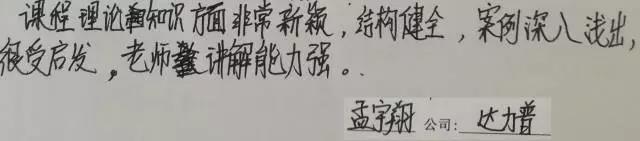 课程理论和知识方面非常新颖，结构健全，案例深入浅出，
很受启发，老师讲解能力强。
孟宇翔 公司：达力普